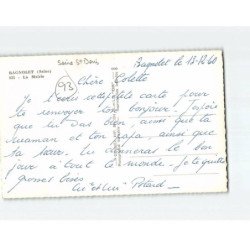 Seine St Denis
BAGNOLET (Seine)
La Mairie
93
Bagnolet le 13.12.60
Chère Colette
Je t'envoie cette petite carte pour
te renvoyer ton bonjour. J'espère
que tu vas bien, ainsi que ta
maman et ton papa, ainsi que
ta sœur. Tu donneras le bon
jour à tout le monde. Je te quitte
grosses bises